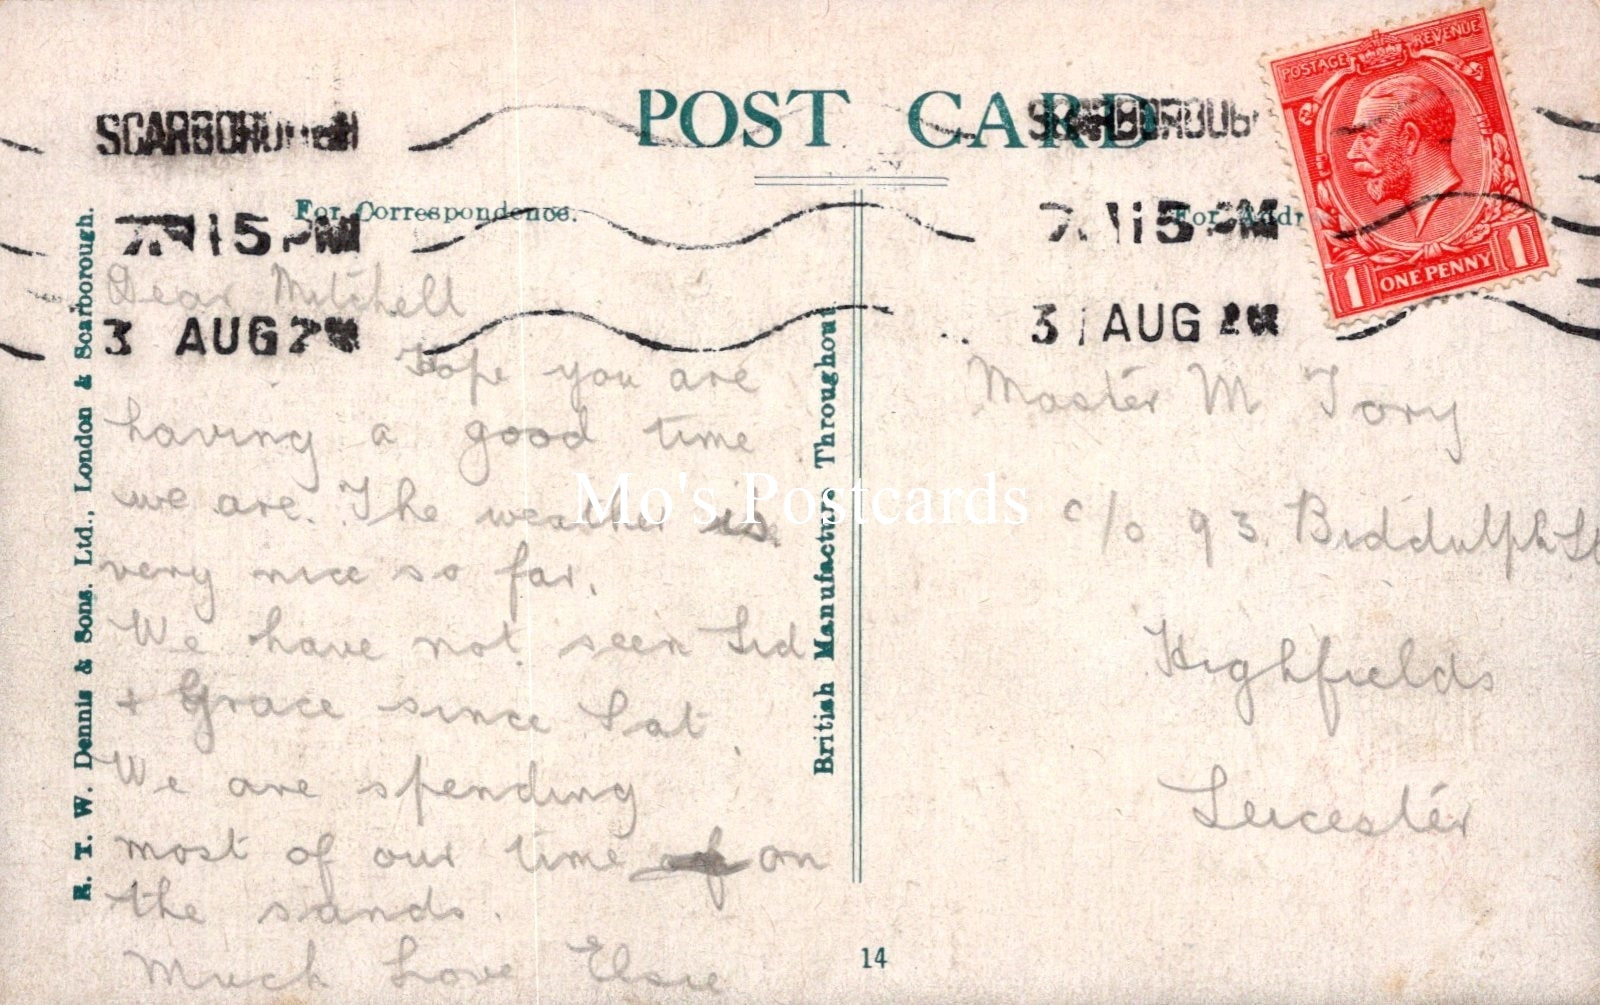 POST CARD
SCARBOROUGH
SCARBOROUGH
POSTAGE REVENUE
1 ONE PENNY 1
For Correspondence.
For Addr
15 PM
15 PM
3 AUG 2
3 AUG 2
Dear Mitchell
Hope you are
having a good time
we are. The weather is
very nice so far.
We have not seen Sid
+ Grace since Sat.
We are spending
most of our time on
the sands.
Much Love Elsie
Master M. Tory
c/o 93. Biddulph St
Highfields
Leicester
E. T. W. Dennis & Sons. Ltd., London & Scarborough.
British Manufacture Throughout
14
Mo's Postcards